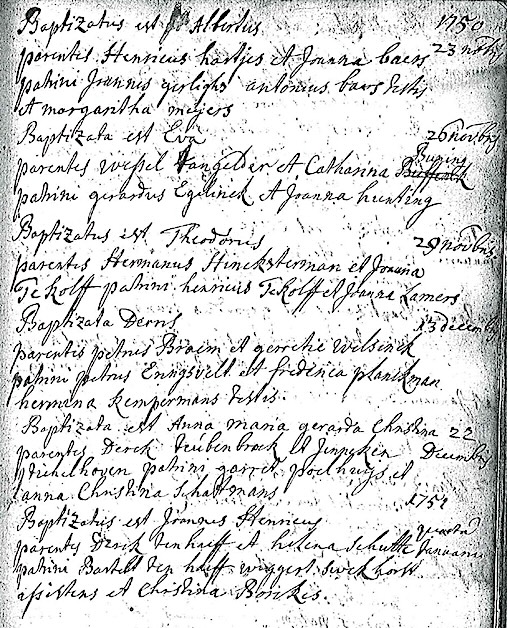 Baptizatus est Albertus 1750
parentis Henricus hartjes et Joanna baers 23 novbris
patrini Joannis gerlighs antonius baers testis
et margaritha meijers
Baptizata est Eva 26 novbris
parentes wessel vangelder et Catharina Buning
patrini gerardus Egelinck et Joanna hunting
Baptizatus est Theodorus 29 novbris
parentis Hermanus Hincksterman et Joanna
Te kolff patrini henricus Te kolff et Joanna Lamers
Baptizata Derns 13 decemb
parentis petrus Braem et gerretie welsinck
patrini petrus Enngsvelt et frederica planckman
hermina kempermans testis.
Baptizata est Anna maria gerarda Christina 22
parentes Derck teubenbrock et Jenneken Decembris
patrini garret poelhuijs et
anna Christina Schattmans
1751
Baptizatus est Joannes Henricus quarta
parentes Derik tenhaeff et helena Schutte Januarii
patrini Bartelt ten haeff wiggert swekhorst
assistens et Christina Bonckes.